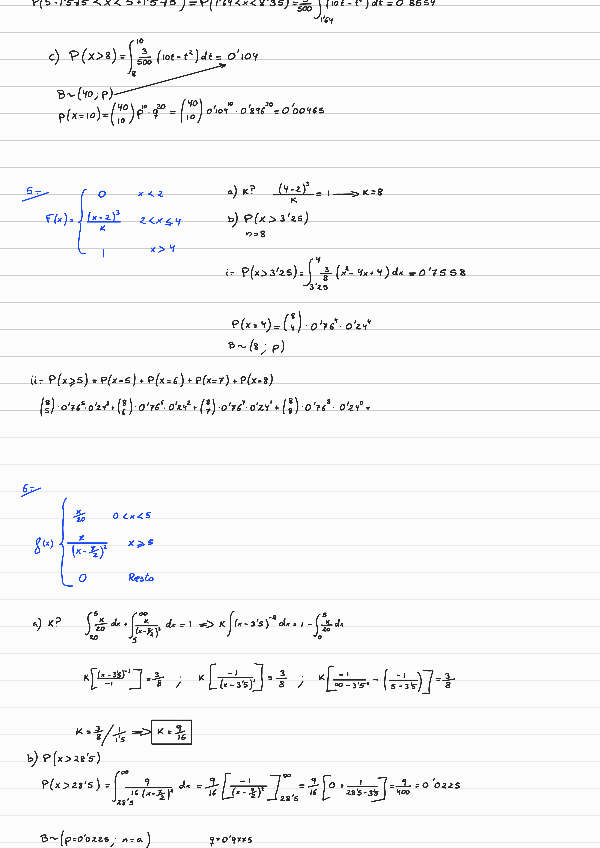 P(5-1'575 < x < 5+1'575) = P(1'64 < x < 8'35) = 3/500 ∫1'64 (10t-t²) dt = 0'8654
c) P(x>8) = ∫₈¹⁰ 3/500 (10t-t²) dt = 0'104
B~(40; p)
P(x=10) = (40 10) p¹⁰ · q³⁰ = (40 10) 0'104¹⁰ · 0'896³⁰ = 0'00465
5=
F(x) = { 0 x<2
(x-2)³/K 2<x≤4
1 x>4
a) K? (4-2)³/K = 1 → K=8
b) P(x>3'25)
n=8
i- P(x>3'25) = ∫3'25⁴ 3/8 (x²-4x+4) dx = 0'7558
P(x=4) = (8 4) · 0'76⁴ · 0'24⁴
B~(8; p)
ii- P(x≥5) = P(x=5) + P(x=6) + P(x=7) + P(x=8)
(8 5) · 0'76⁵ · 0'24³ + (8 6) · 0'76⁶ · 0'24² + (8 7) · 0'76⁷ · 0'24¹ + (8 8) · 0'76⁸ · 0'24⁰ =
6=
f(x) { x/20 0<x<5
K/(x-7/2)² x≥5
0 Resto
a) K? ∫₀⁵ x/20 dx + ∫₅^∞ K/(x-7/2)² dx = 1 => K∫(x-3'5)⁻² dx = 1 - ∫₀⁵ x/20 dx
K[(x-3'5)⁻¹/-1] = 3/8 ; K[-1/(x-3'5)¹] = 3/8 ; K[-1/(∞-3'5) - (-1/(5-3'5))] = 3/8
K = 3/8 / 1/1'5 => K = 9/16
b) P(x>28'5)
P(x>28'5) = ∫28'5^∞ 9/(16(x-7/2)²) dx = 9/16 [-1/(x-7/2)]28'5^∞ = 9/16 [0 + 1/(28'5-3'5)] = 9/400 = 0'0225
B~(p=0'0225; n=a) q=0'9775